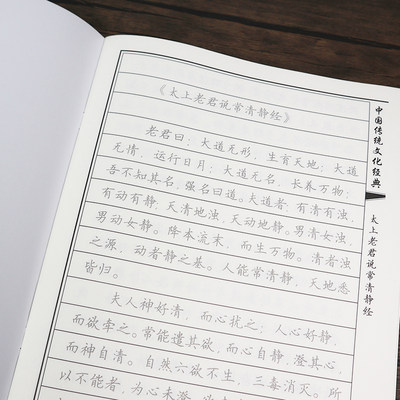 《太上老君说常清静经》
老君曰：大道无形，生育天地；大道
无情，运行日月；大道无名，长养万物；
吾不知其名，强名曰道。大道者：有清有浊，
有动有静，天清地浊，天动地静。男清女浊，
男动女静。降本流末，而生万物。清者浊
之源，动者静之基。人能常清静，天地悉
皆归。
夫人神好清，而心扰之；人心好静，
而欲牵之。常能遣其欲，而心自静，澄其心，
而神自清。自然六欲不生，三毒消灭。所
以不能者，为心未澄，
中国传统文化经典
太上老君说常清静经